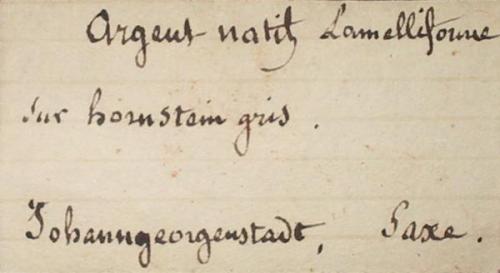 Argent natif Lamelliforme
sur hornstein gris.
Johanngeorgenstadt, Saxe.